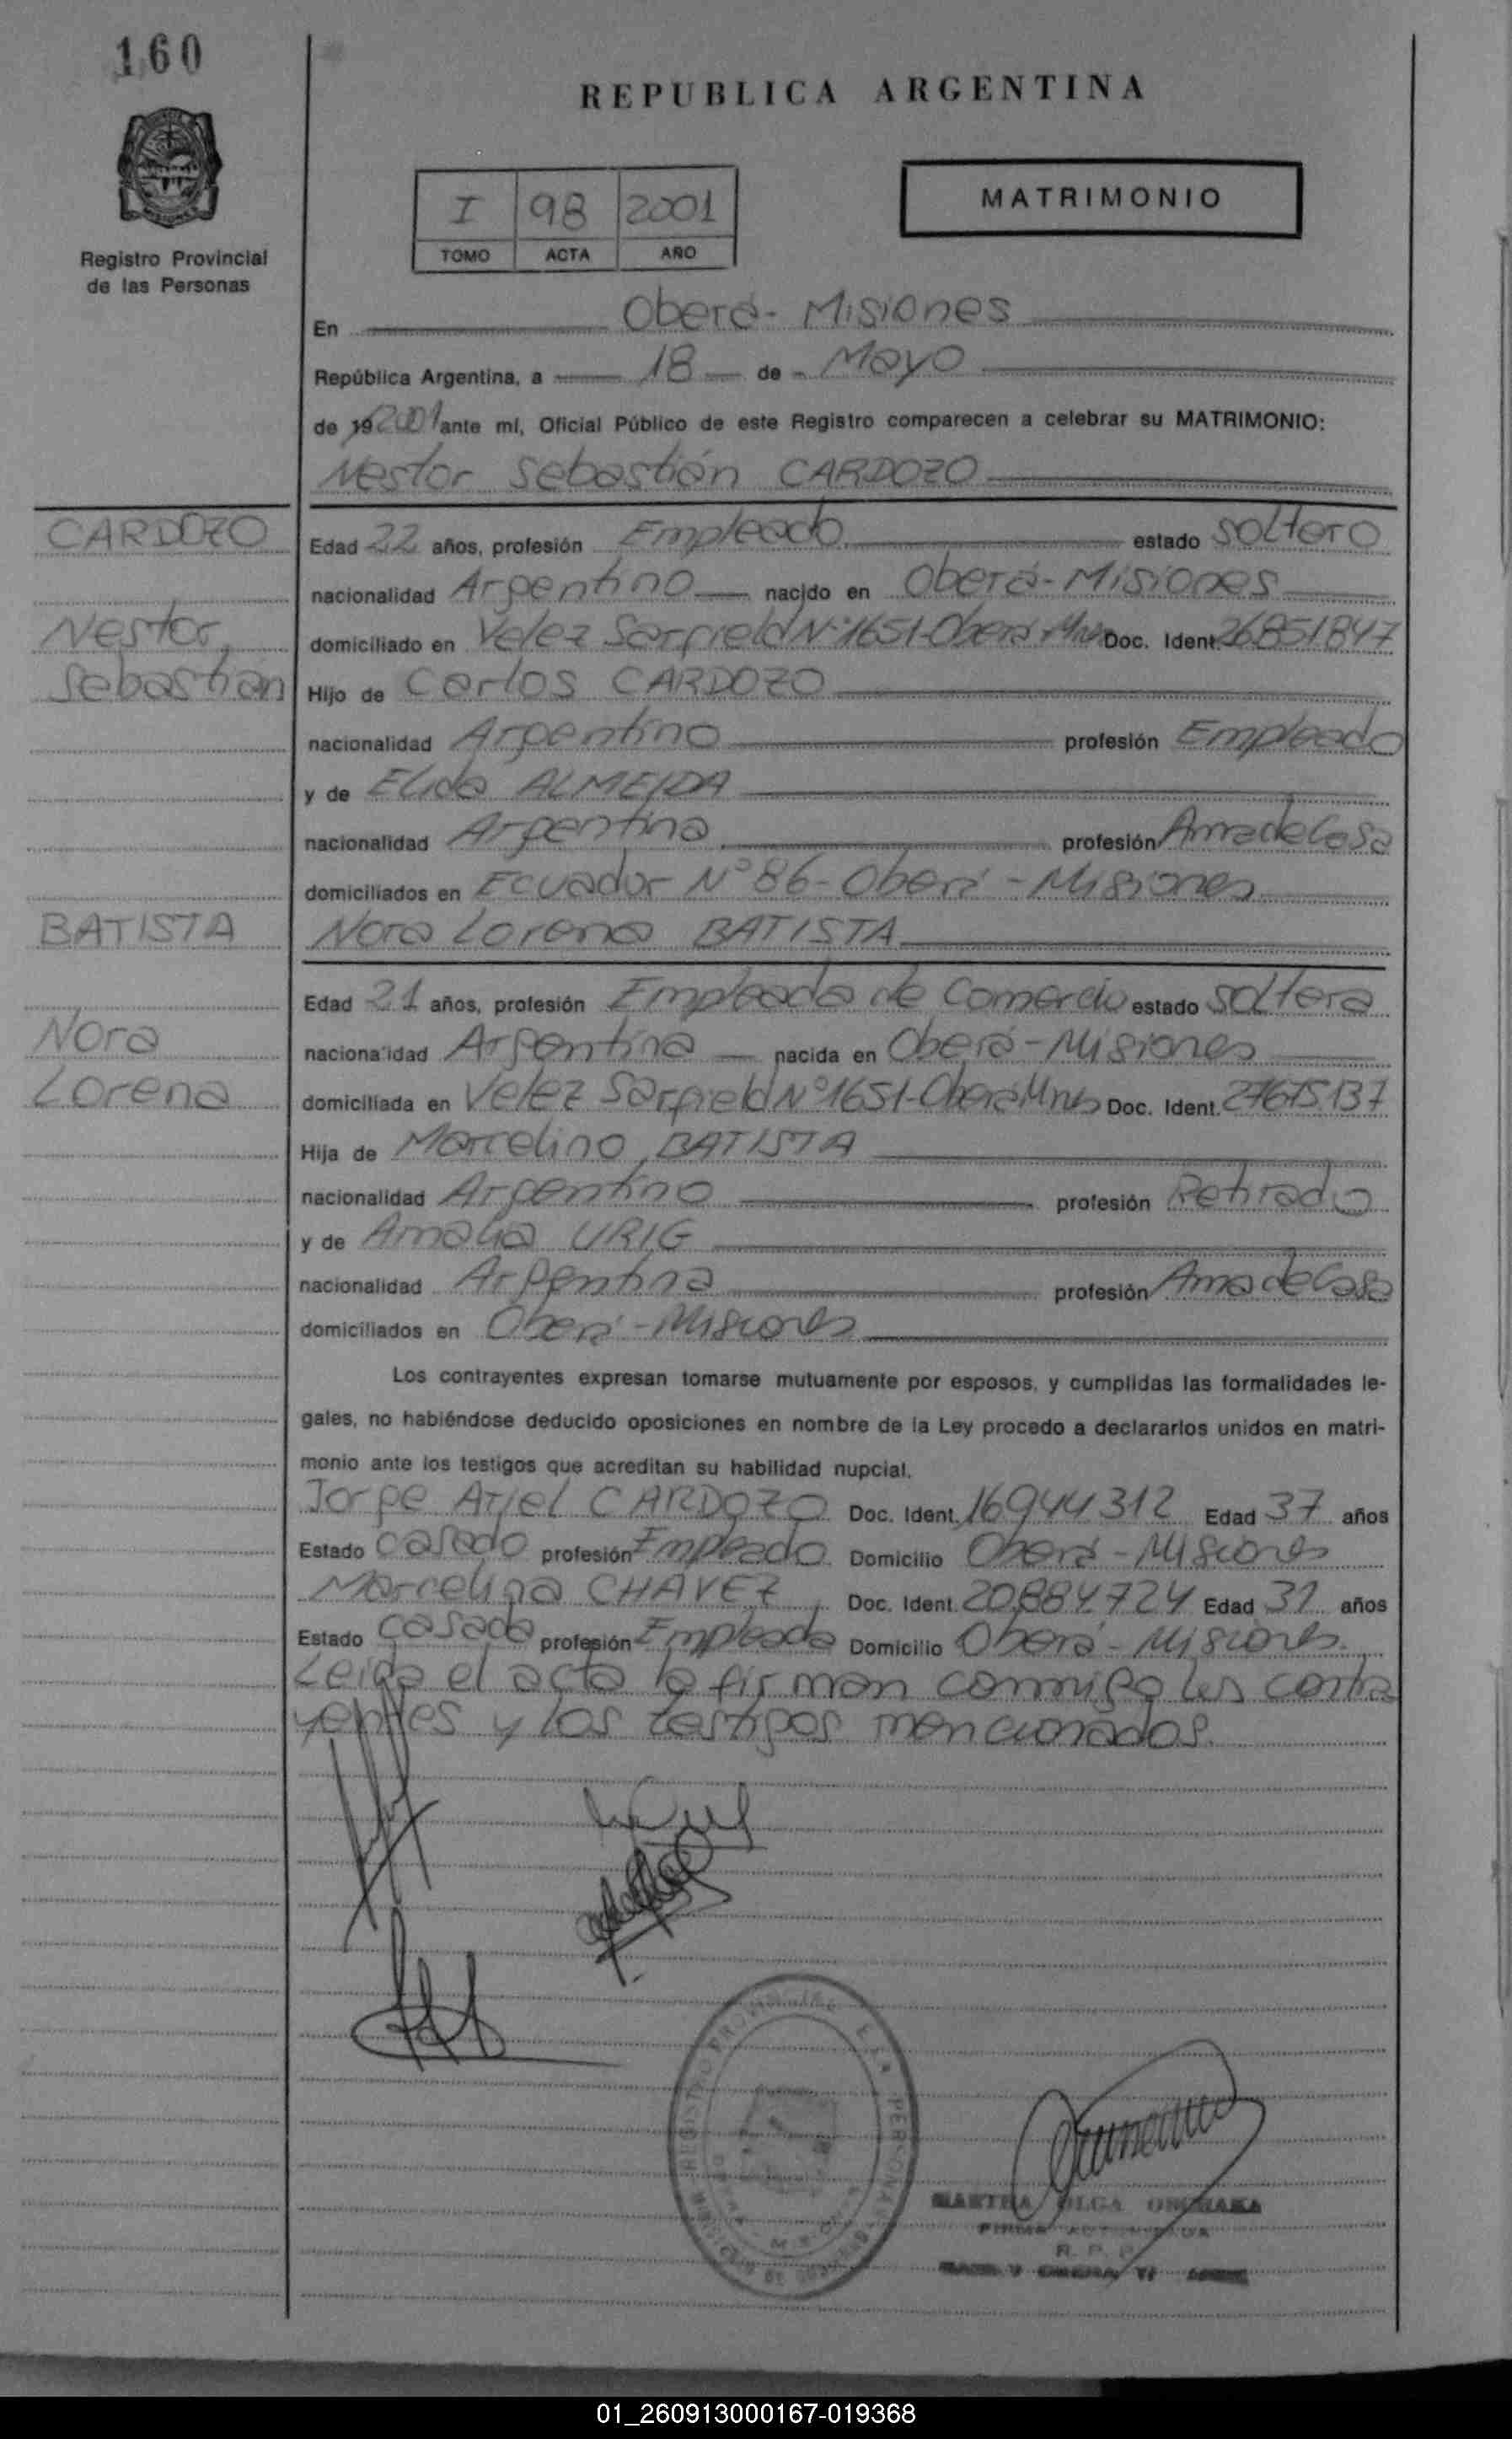 160
REPUBLICA ARGENTINA
MATRIMONIO
I 98 2001
TOMO ACTA AÑO
Registro Provincial
de las Personas
En Oberá - Misiones
República Argentina, a 18 de Mayo
de 19 2001 ante mí, Oficial Público de este Registro comparecen a celebrar su MATRIMONIO:
Nestor Sebastián CARDOZO
CARDOZO
Nestor,
Sebastián
Edad 22 años, profesión Empleado estado soltero
nacionalidad Argentino nacido en Oberá - Misiones
domiciliado en Velez Sarfield Nº 1651 - Oberá - Mnes Doc. Ident. 26851847
Hijo de Carlos CARDOZO
nacionalidad Argentino profesión Empleado
y de Elida ALMEIDA
nacionalidad Argentina profesión Ama de Casa
domiciliados en Ecuador Nº 86 - Oberá - Misiones
BATISTA
Nora Lorena BATISTA
Nora
Lorena
Edad 21 años, profesión Empleada de Comercio estado soltera
nacionalidad Argentina nacida en Oberá - Misiones
domiciliada en Velez Sarfield Nº 1651 - Oberá Mnes Doc. Ident. 27675137
Hija de Marcelino BATISTA
nacionalidad Argentino profesión Retirado
y de Amalia URIG
nacionalidad Argentina profesión Ama de Casa
domiciliados en Oberá - Misiones
Los contrayentes expresan tomarse mutuamente por esposos, y cumplidas las formalidades le-
gales, no habiéndose deducido oposiciones en nombre de la Ley procedo a declararlos unidos en matri-
monio ante los testigos que acreditan su habilidad nupcial.
Jorge Ariel CARDOZO Doc. Ident. 16944312 Edad 37 años
Estado casado profesión Empleado Domicilio Oberá - Misiones
Marcelina CHAVEZ Doc. Ident. 20.884.724 Edad 31 años
Estado casada profesión Empleada Domicilio Oberá - Misiones.
Leida el acta la firman conmigo los contra
yentes y los testigos mencionados.
MARTHA OLGA
FIRMA AUTORIZADA
01_260913000167-019368